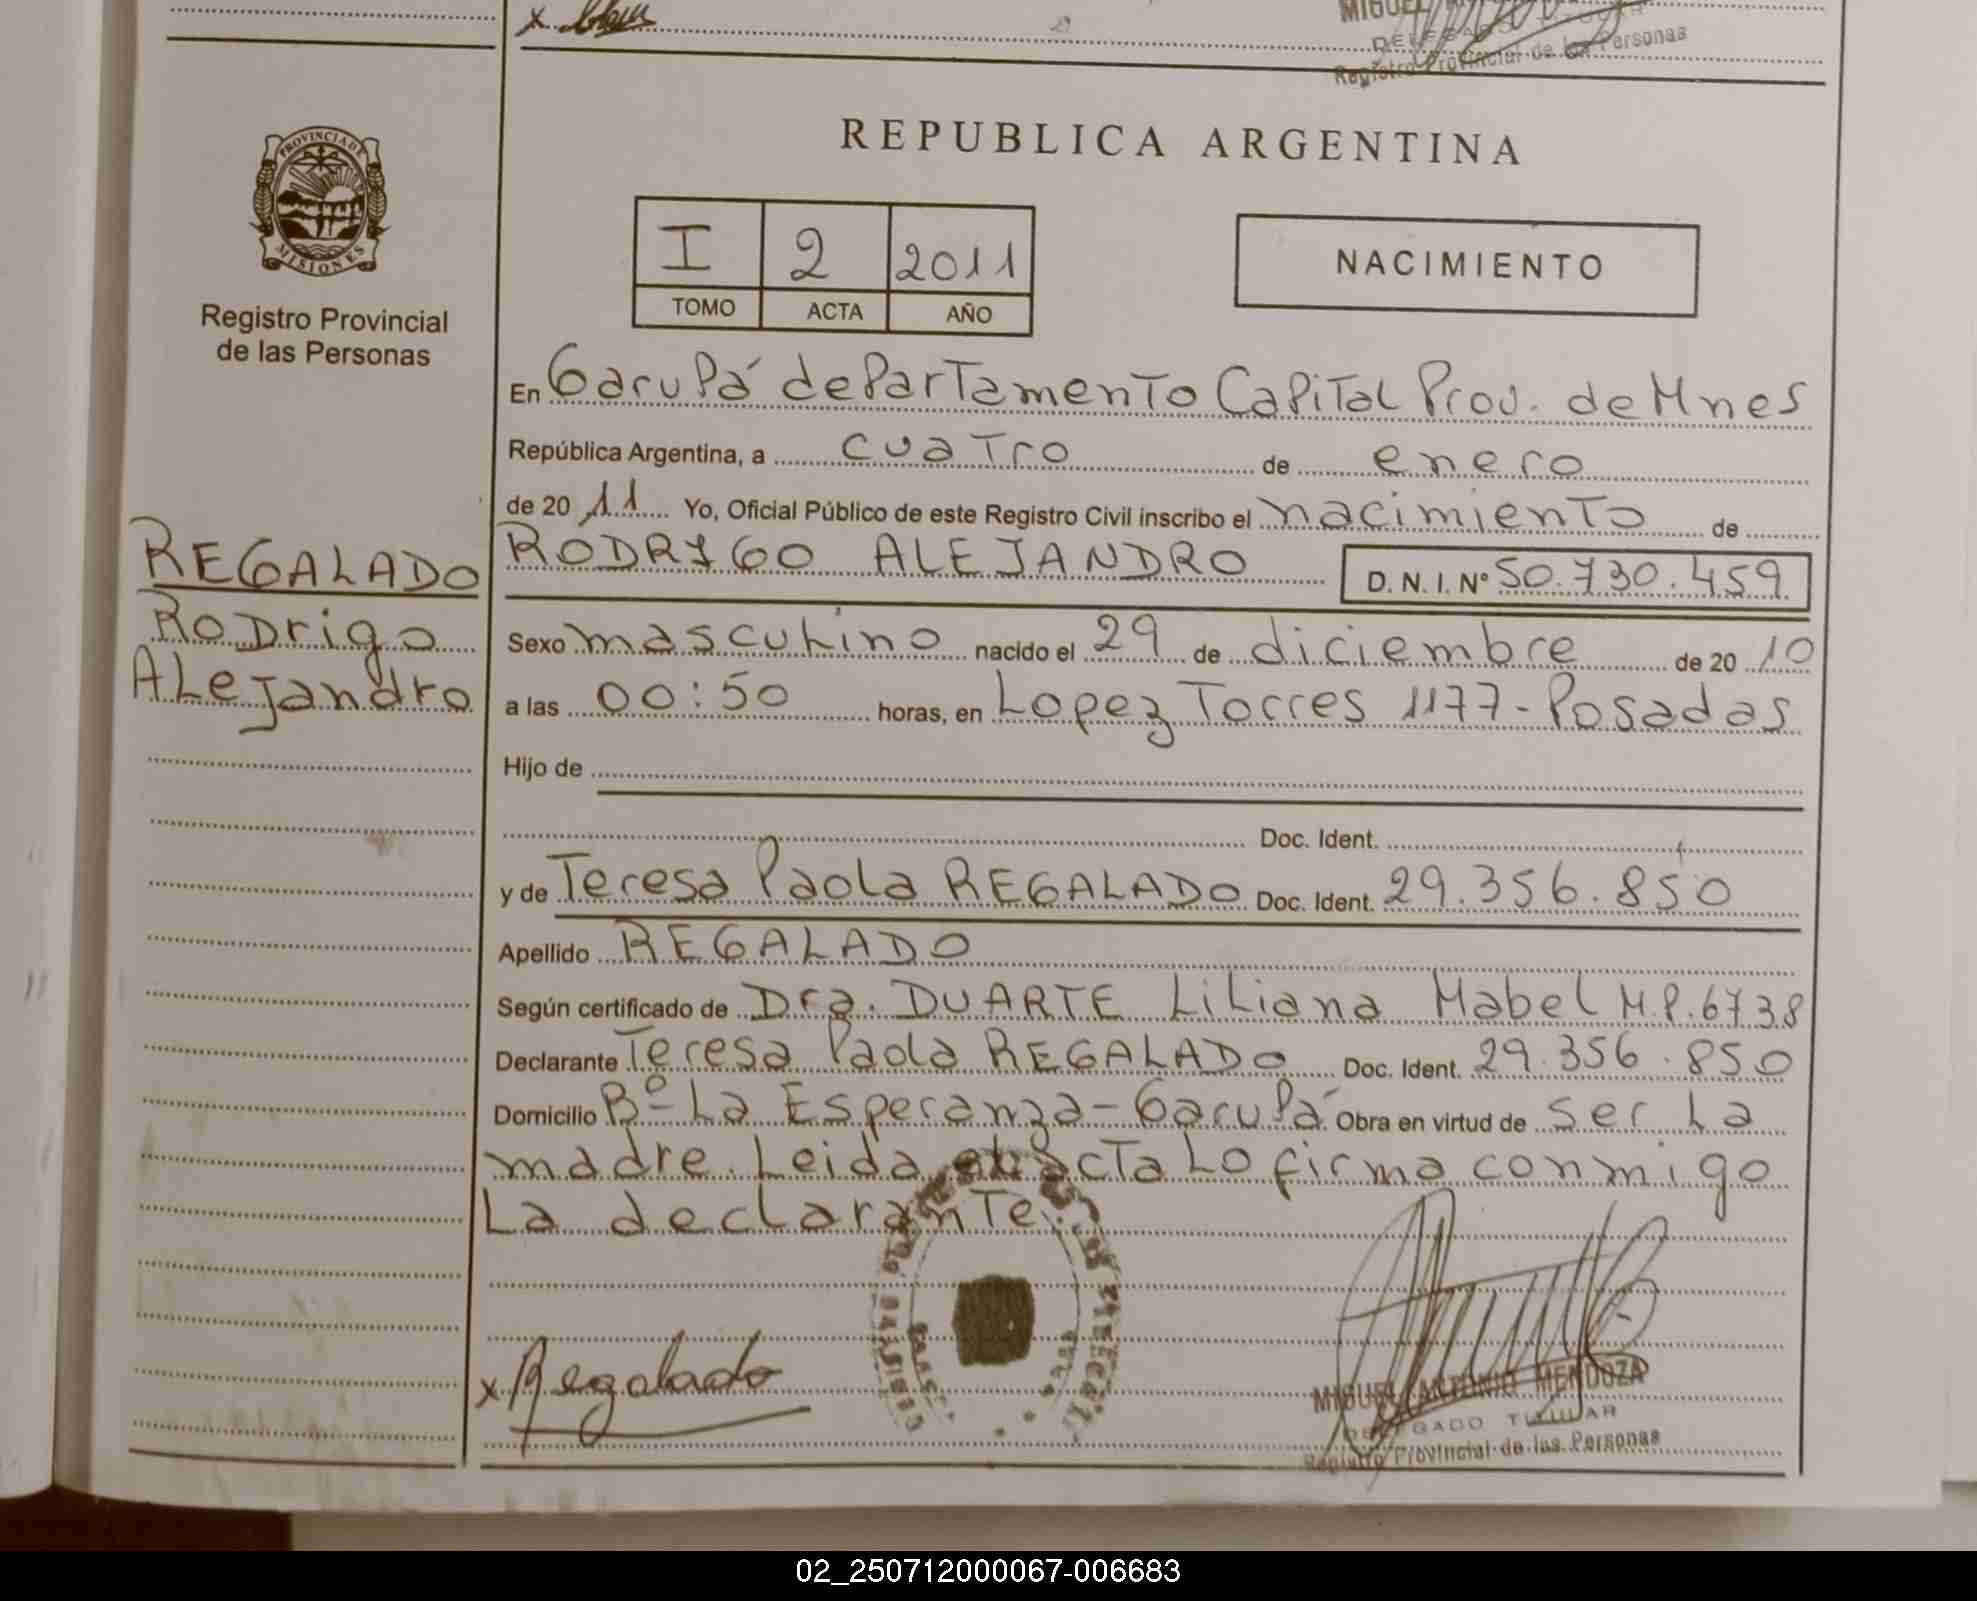 MIGUEL
DELEGADO TITULAR
Registro Provincial de las Personas
PROVINCIA DE
MISIONES
Registro Provincial
de las Personas
REPUBLICA ARGENTINA
I 2 2011
TOMO ACTA AÑO
NACIMIENTO
En Garupá departamento Capital Prov. de Mnes
República Argentina, a cuatro de enero
de 2011 Yo, Oficial Público de este Registro Civil inscribo el nacimiento de
REGALADO
Rodrigo
Alejandro
RODRIGO ALEJANDRO D.N.I. Nº 50.730.459
Sexo masculino nacido el 29 de diciembre de 2010
a las 00:50 horas, en Lopez Torres 1177-Posadas
Hijo de
Doc. Ident.
y de Teresa Paola REGALADO Doc. Ident. 29.356.850
Apellido REGALADO
Según certificado de Dra. DUARTE Liliana Mabel M.P.6738
Declarante Teresa Paola REGALADO Doc. Ident. 29.356.850
Domicilio Bº La Esperanza-Garupá Obra en virtud de ser la
madre. Leida el acta lo firma conmigo
la declarante.
x Regalado
MIGUEL ANTONIO MENDOZA
DELEGADO TITULAR
Registro Provincial de las Personas
02_250712000067-006683